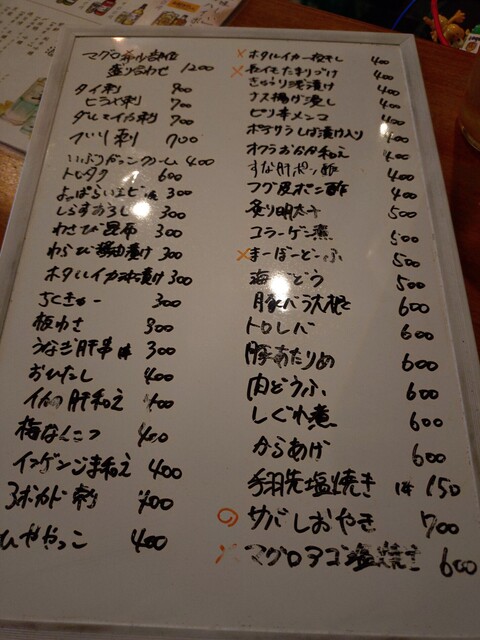 マグロ
盛り合わせ 1200
タイ刺 900
ヒラメ刺 700
ダルマイカ刺 700
ブリ刺 700
いぶりがっこクリーム 400
トロタク 600
よっぱらいエビ 300
しらすおろし 300
わさび昆布 300
わらび醤油漬け 300
ホタルイカ沖漬け 300
ちくきゅー 300
板わさ 300
うなぎ肝串 1本 300
おひたし 400
イカの肝和え 400
梅なんこつ 400
インゲンごま和え 400
アボカド刺 400
ひややっこ 400
× ホタルイカ一夜干し 400
× 400
きゅうり浅漬け 400
ナス揚げ浸し 400
ピリ辛メンマ 400
ポテサラしば漬け入り 400
オクラおかか和え 400
すな肝ポン酢 400
フグ皮ポン酢 400
炙り明太子 500
コラーゲン煮 500
× まーぼーどーふ 500
海ぶどう 500
豚バラ大根 600
トロレバ 600
豚あたりめ 600
肉どうふ 600
しぐれ煮 600
からあげ 600
手羽先塩焼き 1本 150
サバしおやき 700
× マグロアゴ塩焼き 600